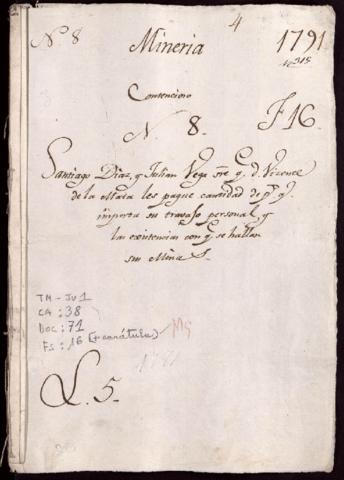 4
Nº 8 Mineria 1791
Contencioso
N. 8. F 16
Santiago Diaz, y Julian Vega sre q. d. Vicente
de la Mata les pague cantidad de ps. q.
importa su travajo personal, y
las existencias con q. se hallan
su Mina
TM - JV1
CA : 38
DOC : 71
Fs : 16 (+ carátula)
1791
L. 5.